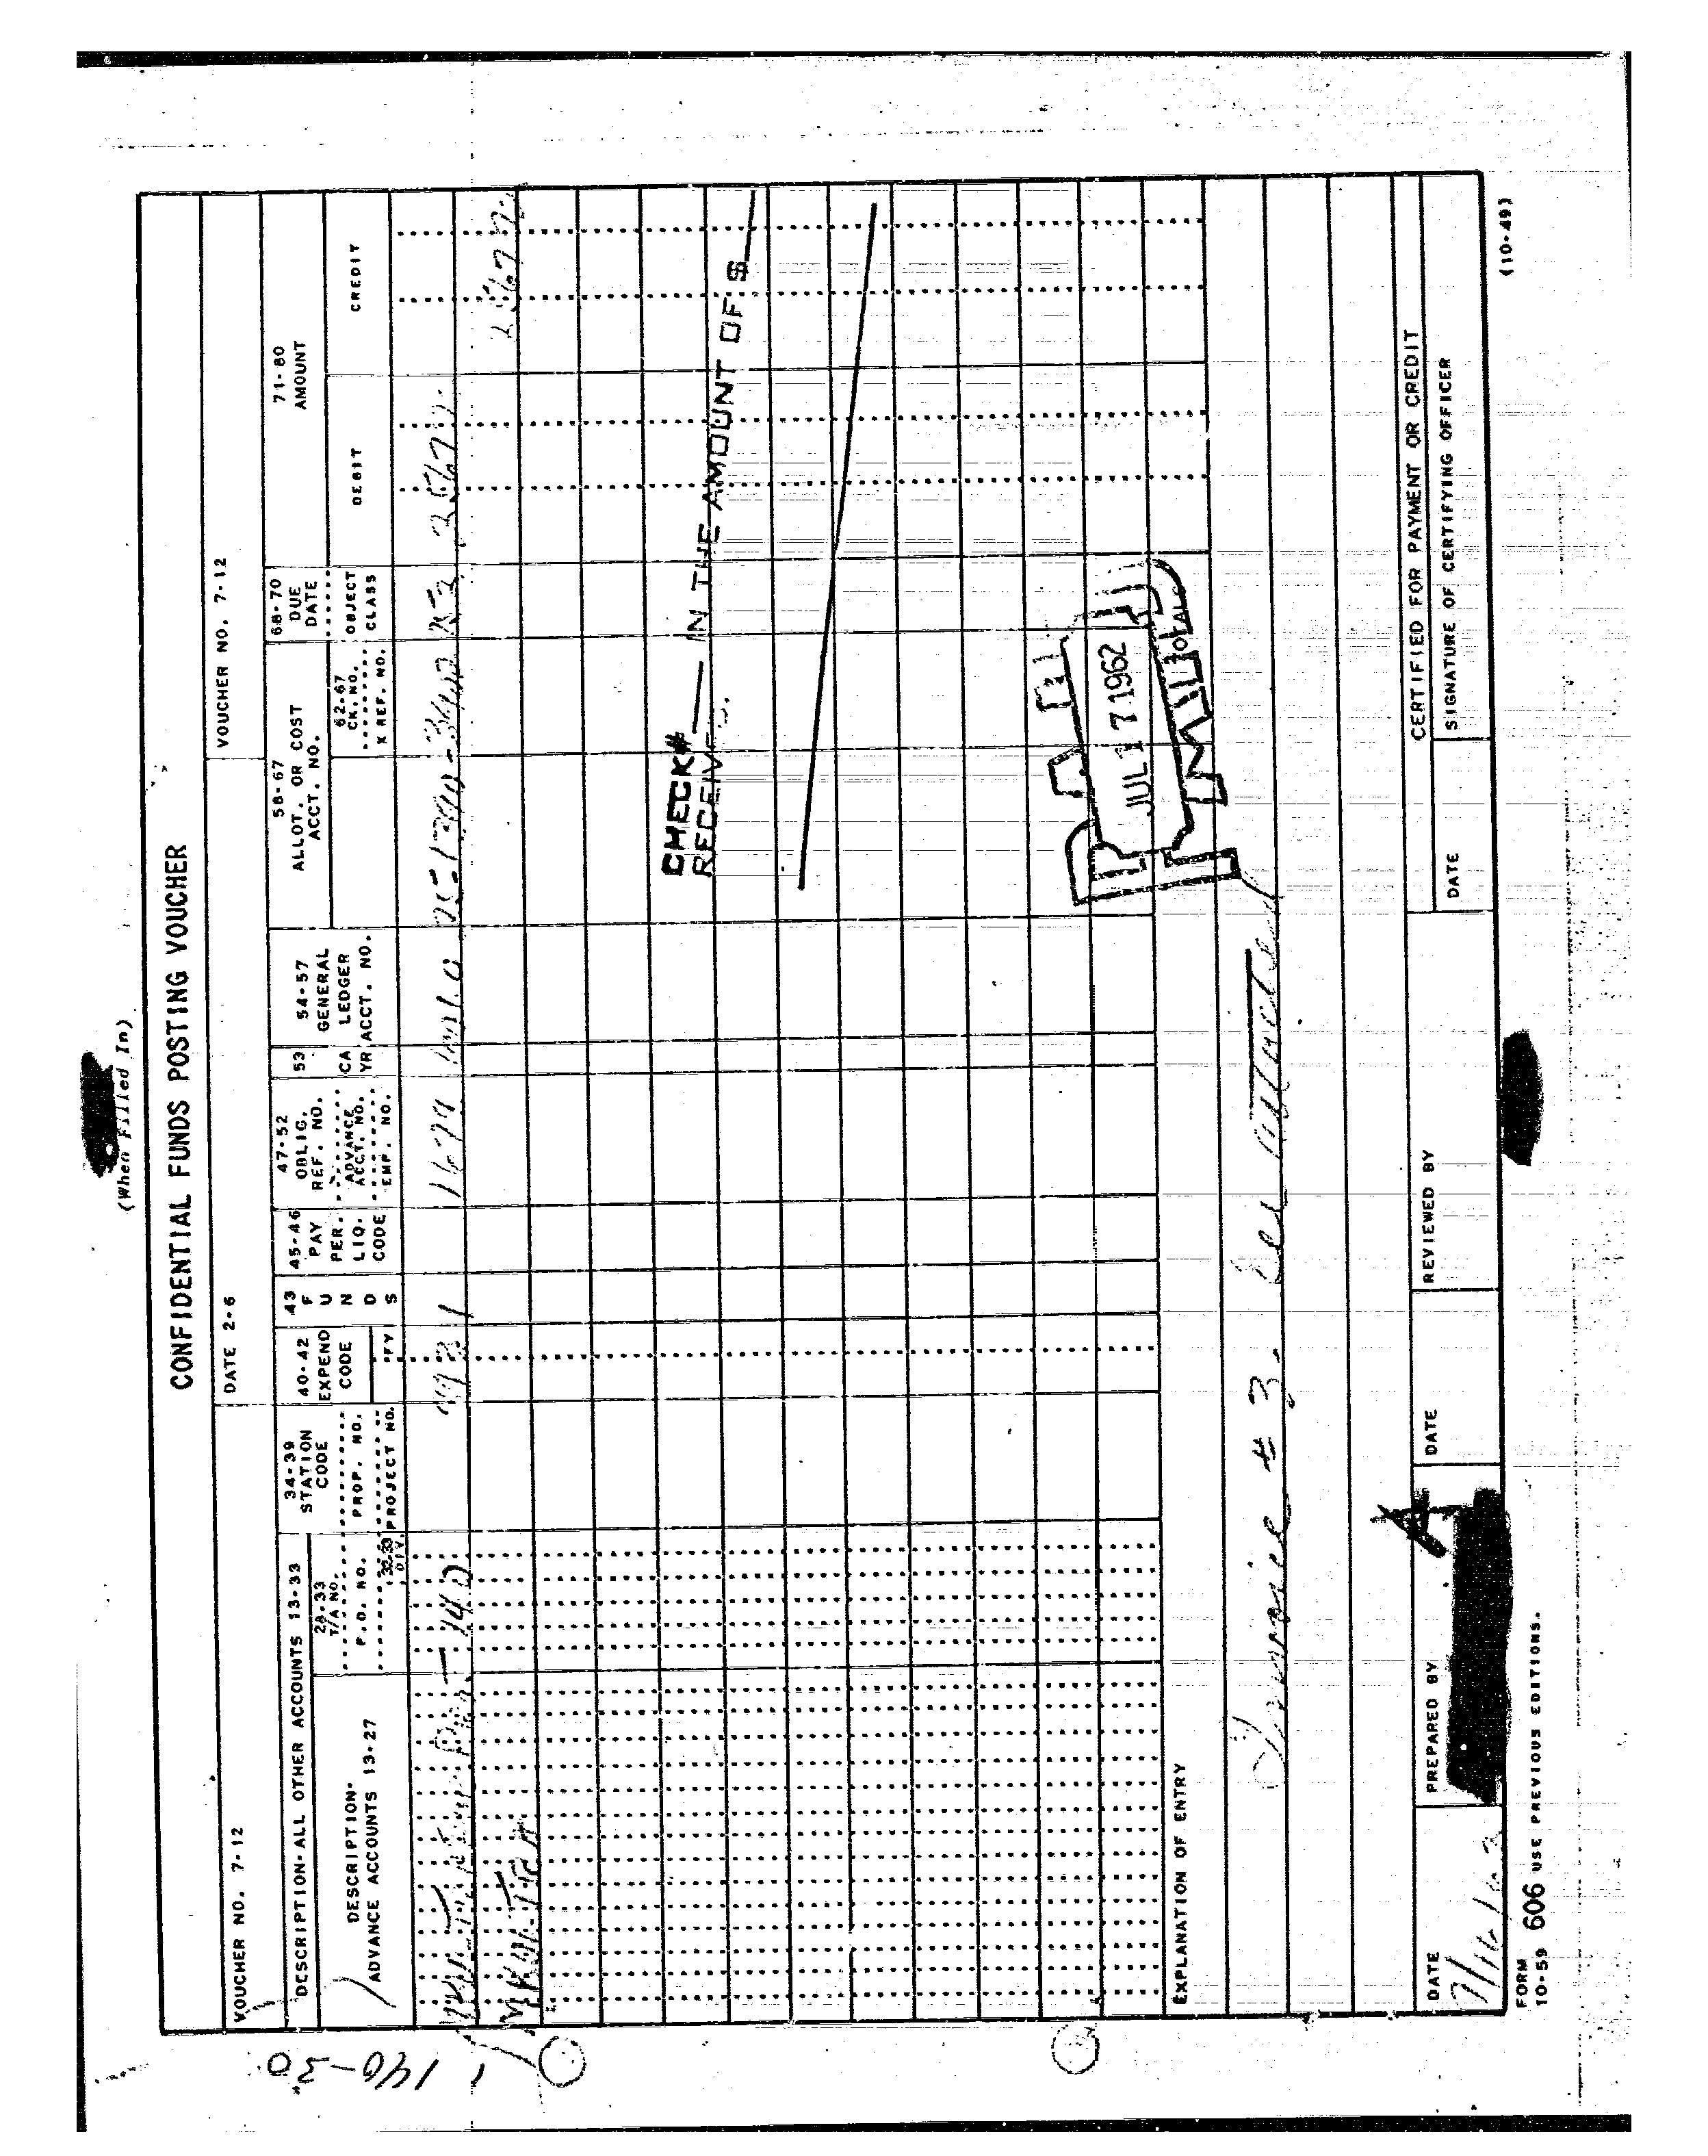 (When Filled In)
CONFIDENTIAL FUNDS POSTING VOUCHER
VOUCHER NO. 7-12
DATE 2-6
VOUCHER NO. 7-12
DESCRIPTION-ALL OTHER ACCOUNTS 13-33
DESCRIPTION-
ADVANCE ACCOUNTS 13-27
28-33
T/A NO.
P.O. NO.
32-33
DIV.
34-39
STATION
CODE
PROP. NO.
PROJECT NO.
40-42
EXPEND
CODE
FY
43
FUNDS
45-46
PAY
PER.
LIQ.
CODE
47-52
OBLIG.
REF. NO.
ADVANCE
ACCT. NO.
EMP. NO.
53
CA
YR
54-57
GENERAL
LEDGER
ACCT. NO.
58-67
ALLOT. OR COST
ACCT. NO.
62-67
CK. NO.
X REF. NO.
68-70
DUE
DATE
OBJECT
CLASS
71-80
AMOUNT
DEBIT
CREDIT
140
MKULTRA
CHECK# IN THE AMOUNT OF $
RECEIVED.
PAID
JUL 17 1962
EXPLANATION OF ENTRY
Invoice # 3. See attached
CERTIFIED FOR PAYMENT OR CREDIT
DATE
PREPARED BY
DATE
REVIEWED BY
DATE
SIGNATURE OF CERTIFYING OFFICER
A
FORM
10-59 606 USE PREVIOUS EDITIONS.
(10-49)